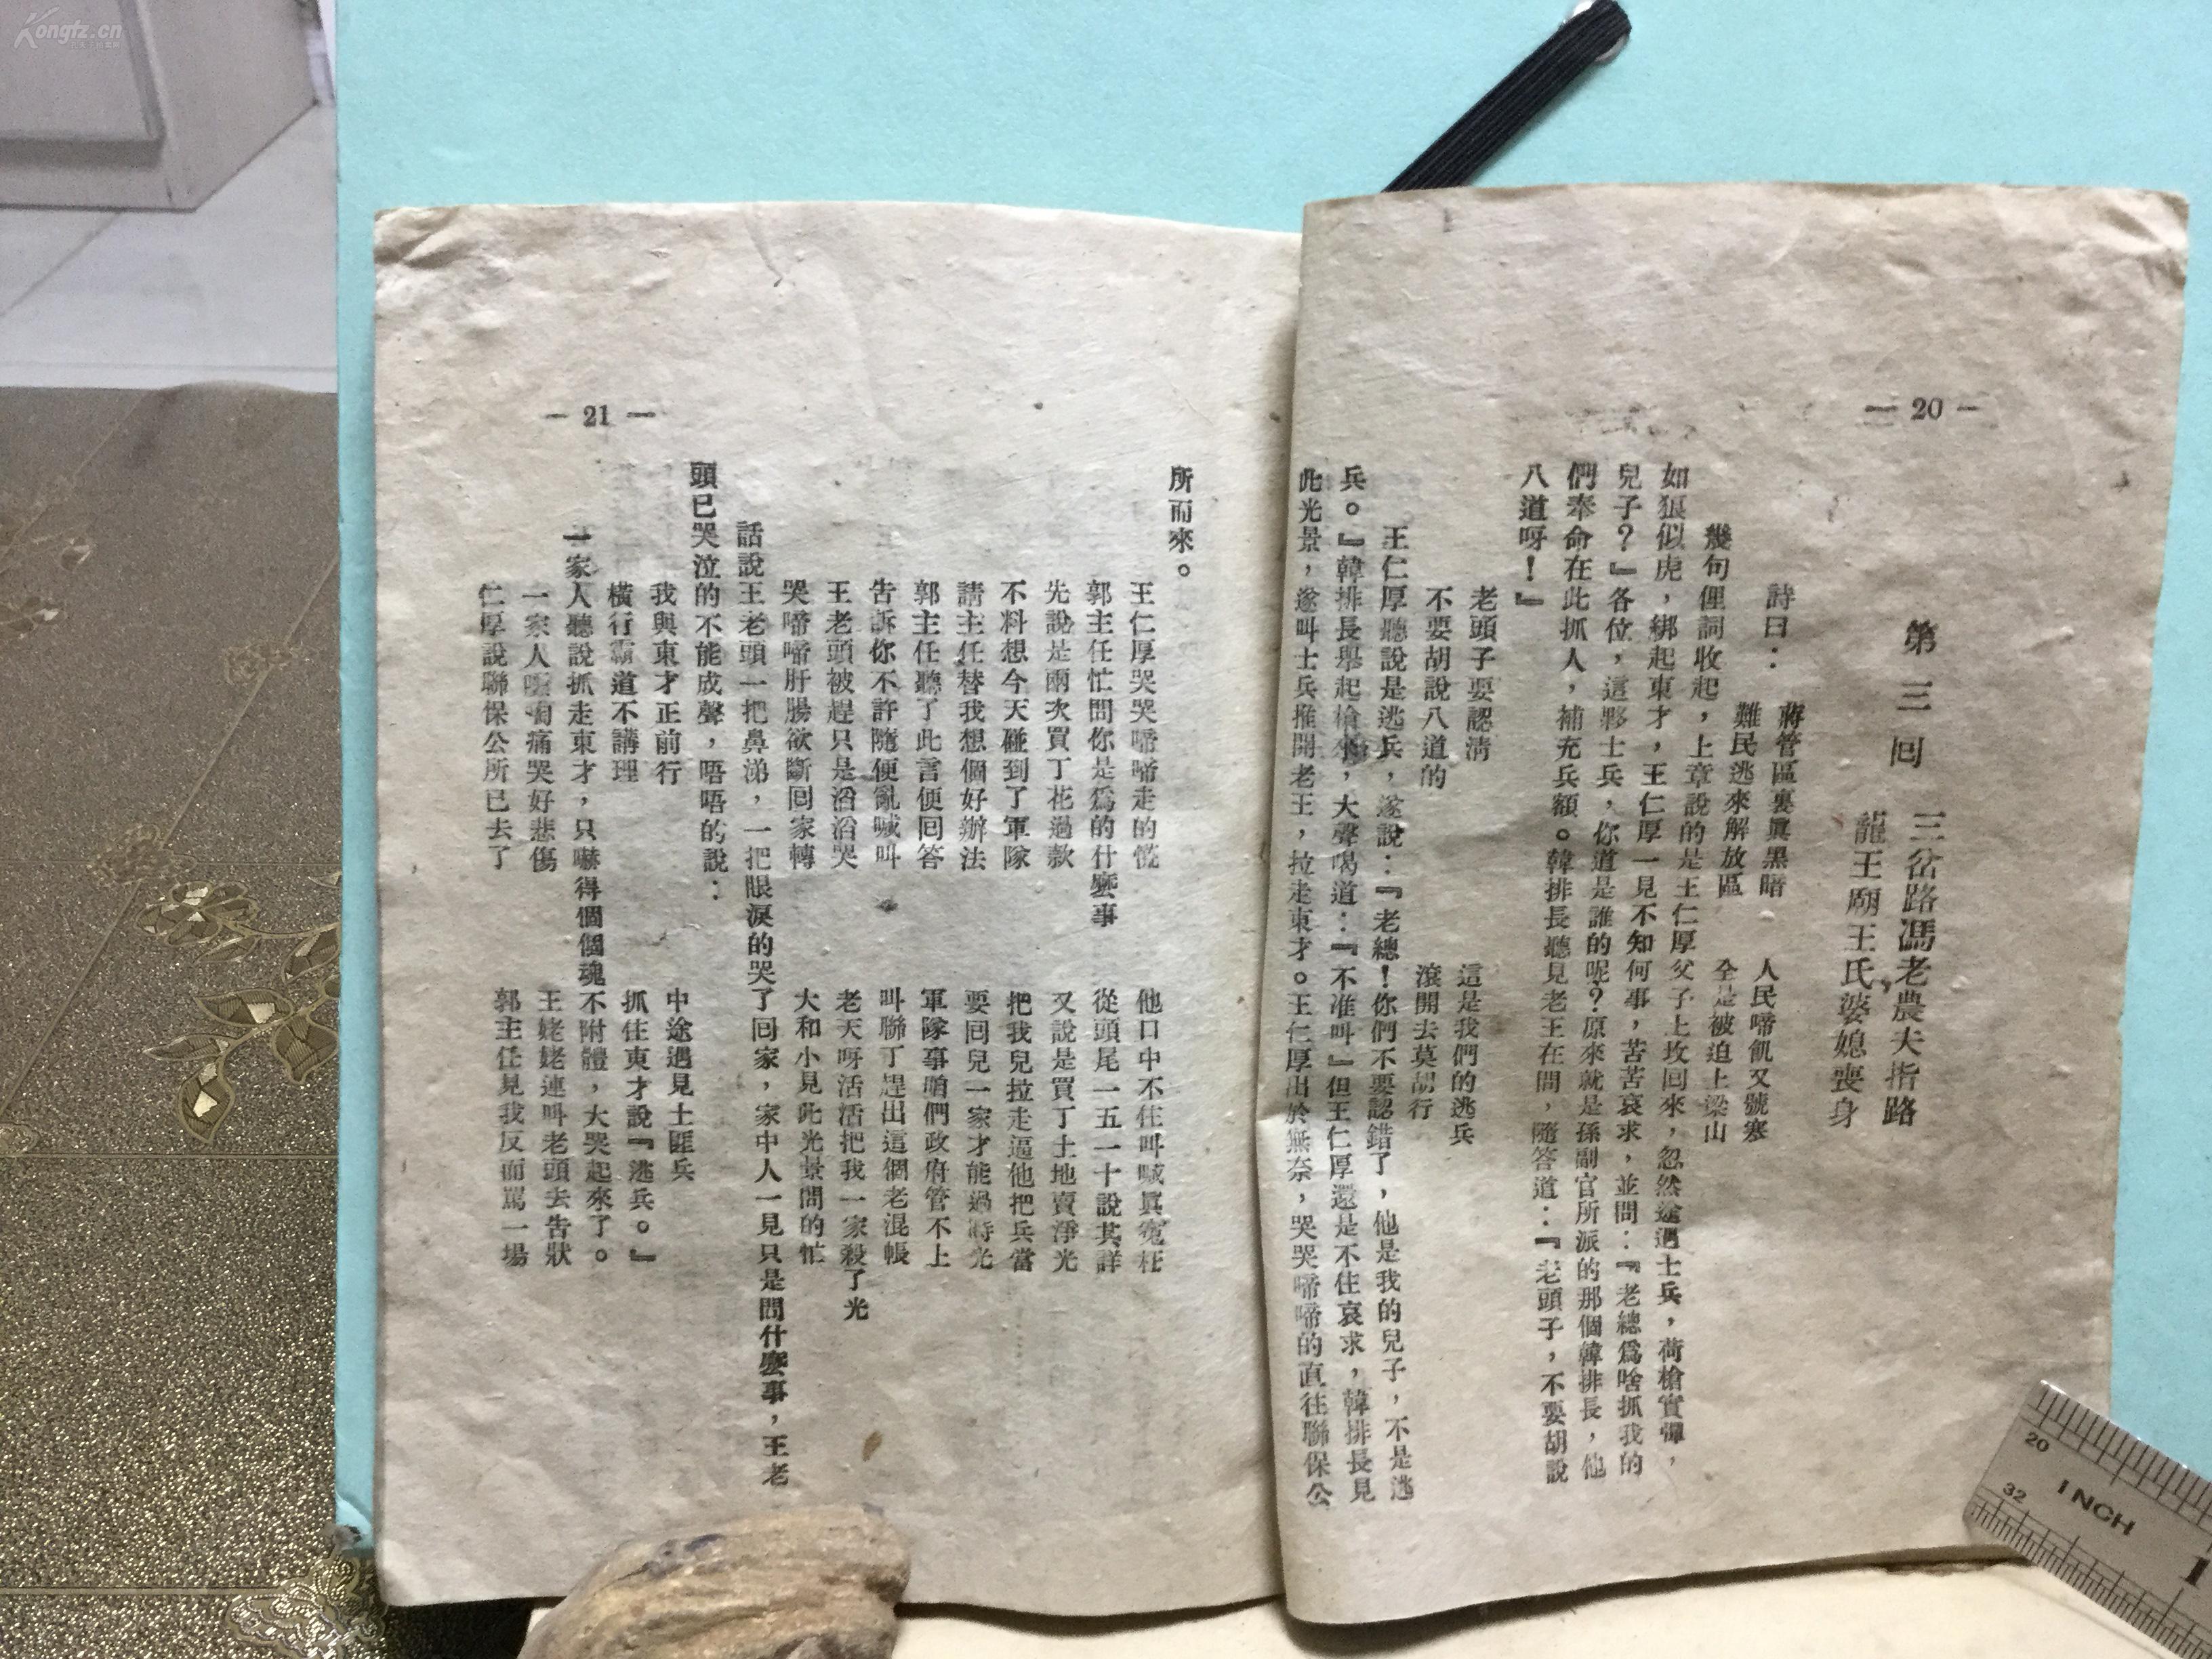 Kongfz.cn
— 20 —
第三回　三岔路馮老農夫指路
龍王廟王氏婆媳喪身
詩曰：　蔣管區裏眞黑暗　人民啼飢又號寒
難民逃來解放區　全是被迫上梁山
幾句俚詞收起，上章說的是王仁厚父子上坟回來，忽然途遇士兵，荷槍實彈，
如狼似虎，綁起東才，王仁厚一見不知何事，苦苦哀求，並問：『老總爲啥抓我的
兒子？』各位，這夥士兵，你道是誰的呢？原來就是孫副官所派的那個韓排長，他
們奉命在此抓人，補充兵額。韓排長聽見老王在問，隨答道：『老頭子，不要胡說
八道呀！』
老頭子要認清　這是我們的逃兵
不要胡說八道的　滾開去莫胡行
王仁厚聽說是逃兵，遂說：『老總！你們不要認錯了，他是我的兒子，不是逃
兵。』韓排長舉起槍來，大聲喝道：『不准叫』但王仁厚還是不住哀求，韓排長見
此光景，遂叫士兵推開老王，拉走東才。王仁厚出於無奈，哭哭啼啼的直往聯保公
— 21 —
所而來。
王仁厚哭哭啼啼走的慌　他口中不住叫喊眞冤枉
郭主任忙問你是爲的什麼事　從頭尾一五一十說其詳
先說是兩次買丁花過款　又說是買丁土地賣淨光
不料想今天碰到了軍隊　把我兒拉走逼他把兵當
請主任替我想個好辦法　要回兒一家才能過時光
郭主任聽了此言便回答　軍隊事咱們政府管不上
告訴你不許隨便亂喊叫　叫聯丁趕出這個老混帳
王老頭被趕只是滔滔哭　老天呀活活把我一家殺了光
哭啼啼肝腸欲斷回家轉　大和小見此光景問的忙
話說王老頭一把鼻涕，一把眼淚的哭了回家，家中人一見只是問什麼事，王老
頭已哭泣的不能成聲，唔唔的說：
我與東才正前行　中途遇見土匪兵
橫行霸道不講理　抓住東才說『逃兵。』
一家人聽說抓走東才，只嚇得個個魂不附體，大哭起來了。
一家人痛哭好悲傷　王姥姥連叫老頭去告狀
仁厚說聯保公所已去了　郭主任見我反而罵一場
20
32
INCH
1